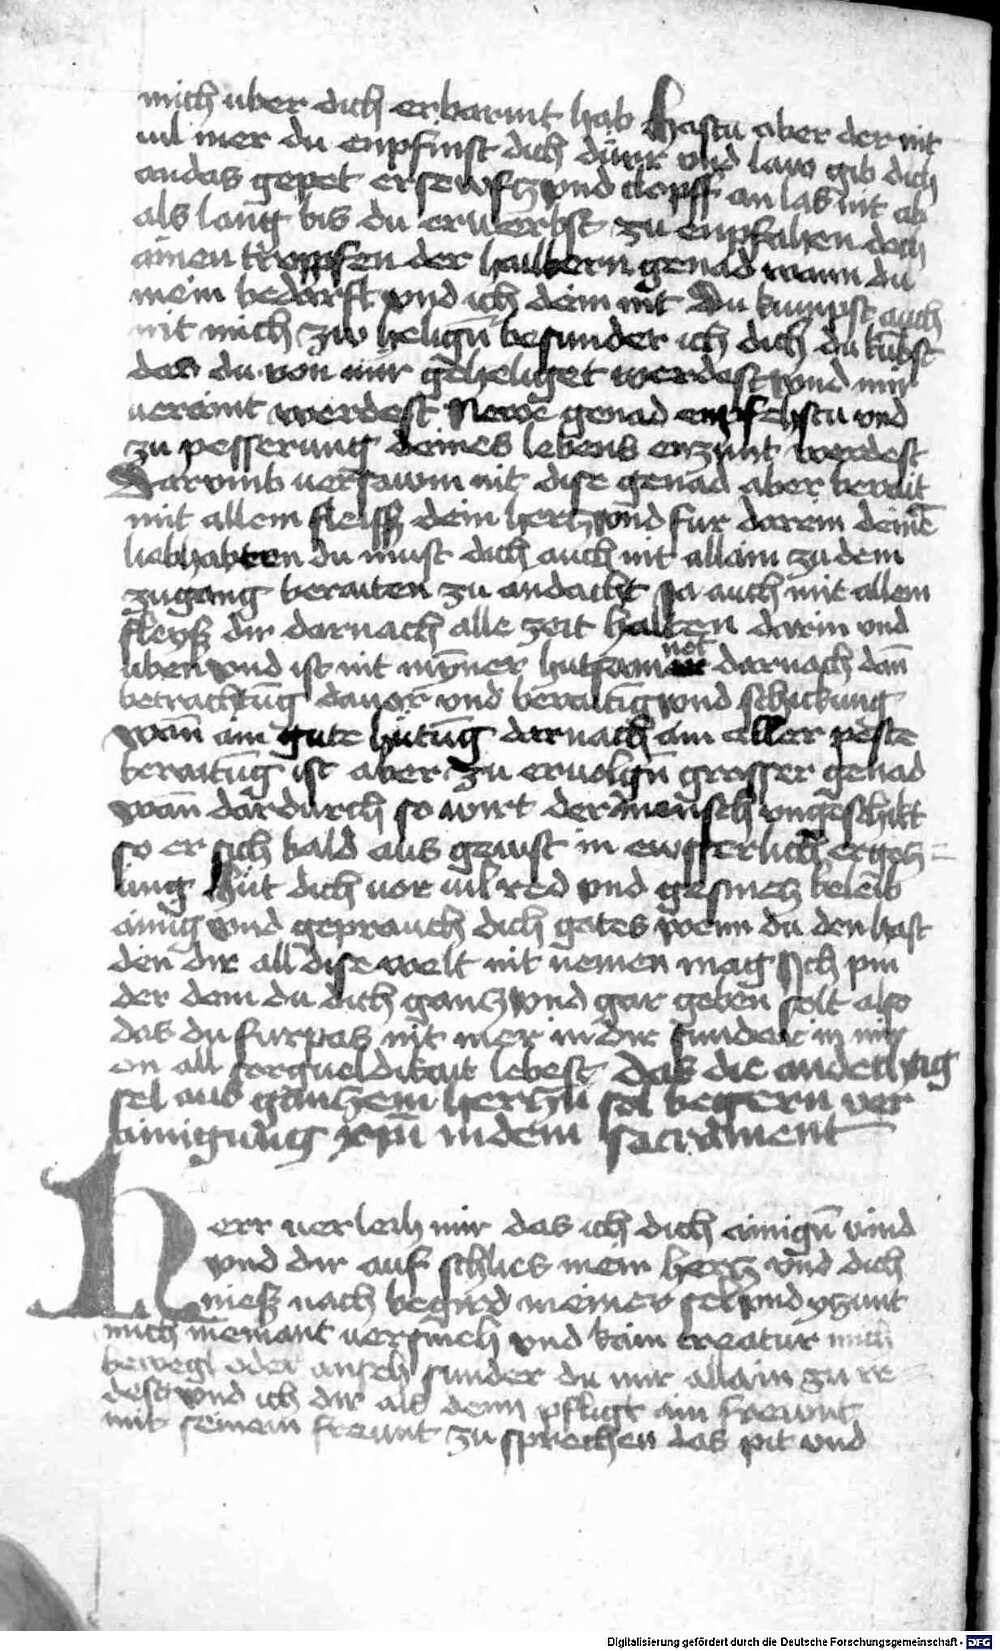 mich uber dich erbarmt hab Hastu aber der nit
uil mer du enpfinst dich dürr vnd law gib dich
an das gepet ersewftz vnd clopff an las nit ab
als lang bis du erwerbst zu enpfahen doch
ainen tropffen der hailbern genad wann du
mein bedarft vnd ich dein nit Du kumpst auch
nit mich zw heligñ besunder ich dich du kūbst
das du von mir geheliget werdest vnd mir
ueraint werdest Newe genad empfehstu vnd
zu pesserung deines lebens enzunt werdest
Darumb uersawm nit dise genad aber berait
mit allem fleiss dein hertz vnd fur darein deinē
liebhabern du must dich auch nit allain zu dem
zugang beraiten zu andacht Ja auch mit allem
fleyß dir darnach alle zeit halten darin vnd
uben vnd ist nit mȳner hutsam not darnach dañ
betrachtūg dauor vnd beraitūg vnd schickung
wañ ain gute hütūg darnach ain aller peste
beraitūg ist aber zu eruolgñ grosser genad
wañ dardurch so wirt der mensch vngeschikt
so er sich bald aus geust in ewsserlich ergetz=
ung Hüt dich uor uil red vnd gesmetz beleib
ainig vnd geprauch dich gotes wenn du den hast
den dir all dise welt nit nemen mag Ich pin
der dem du dich gantz vnd gar geben solt also
das du furpas nit mer in dir sunder in mir
on all sorgueldikait lebest Das die andechtig
sel aus gantzem hertzñ sol begern uer
ainigung xp̄i in dem sacrament
Herr uerleih mir das ich dich ainigñ vind
vnd dir auf schlies mein hertz vnd dich
nieß nach begird meiner sel vnd yzunt
mich niemant uersmeh vnd kain creatur mich
beweg oder anseh sunder du mir allain zu re
dest vnd ich dir als denn pfligt ain frewnt
mit seinem freunt zu sprechen das pit vnd
Digitalisierung gefördert durch die Deutsche Forschungsgemeinschaft - DFG